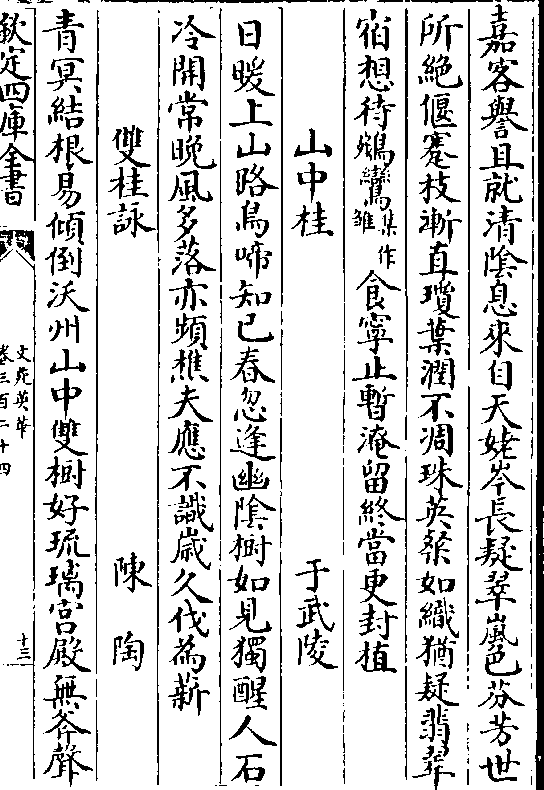 嘉客譽且就清陰息來自天姥岑長疑翠嵐色芬芳世
所絶偃蹇枝漸直瓊葉潤不凋珠英粲如織猶疑翡翠
宿想待鵷鸞集作雛食寧止暫淹留終當更封植
山中桂 于武陵
日暖上山路鳥啼知已春忽逢幽隂樹如見獨醒人石
冷開常晚風多落亦頻樵夫應不識歲久伐為薪
雙桂詠 陳陶
青冥結根易傾倒沃州山中雙樹好琉璃宫殿無斧聲
欽定四庫全書
文苑英華
卷三百二十四
十三